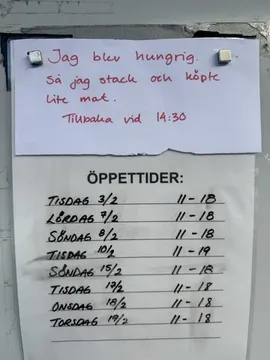 Jag blev hungrig.
så jag stack och köpte
lite mat.
Tillbaka vid 14:30
ÖPPETTIDER:
TISDAG 3/2 11-18
LÖRDAG 7/2 11-18
SÖNDAG 8/2 11-18
TISDAG 10/2 11-19
SÖNDAG 15/2 11-18
TISDAG 17/2 11-18
ONSDAG 18/2 11-18
TORSDAG 19/2 11-18